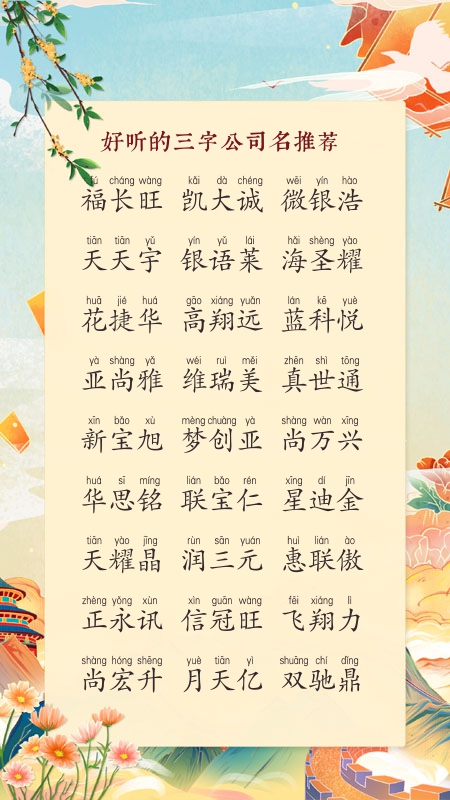 好听的三字公司名推荐
fú cháng wàng kǎi dà chéng wēi yín hào
福长旺 凯大诚 微银浩
tiān tiān yǔ yín yǔ lái hǎi shèng yào
天天宇 银语莱 海圣耀
huā jié huá gāo xiáng yuǎn lán kē yuè
花捷华 高翔远 蓝科悦
yà shàng yǎ wéi ruì měi zhēn shì tōng
亚尚雅 维瑞美 真世通
xīn bǎo xù mèng chuàng yà shàng wàn xīng
新宝旭 梦创亚 尚万兴
huá sī míng lián bǎo rén xīng dí jīn
华思铭 联宝仁 星迪金
tiān yào jīng rùn sān yuán huì lián ào
天耀晶 润三元 惠联傲
zhèng yǒng xùn xìn guān wàng fēi xiáng lì
正永讯 信冠旺 飞翔力
shàng hóng shēng yuè tiān yì shuāng chí dǐng
尚宏升 月天亿 双驰鼎